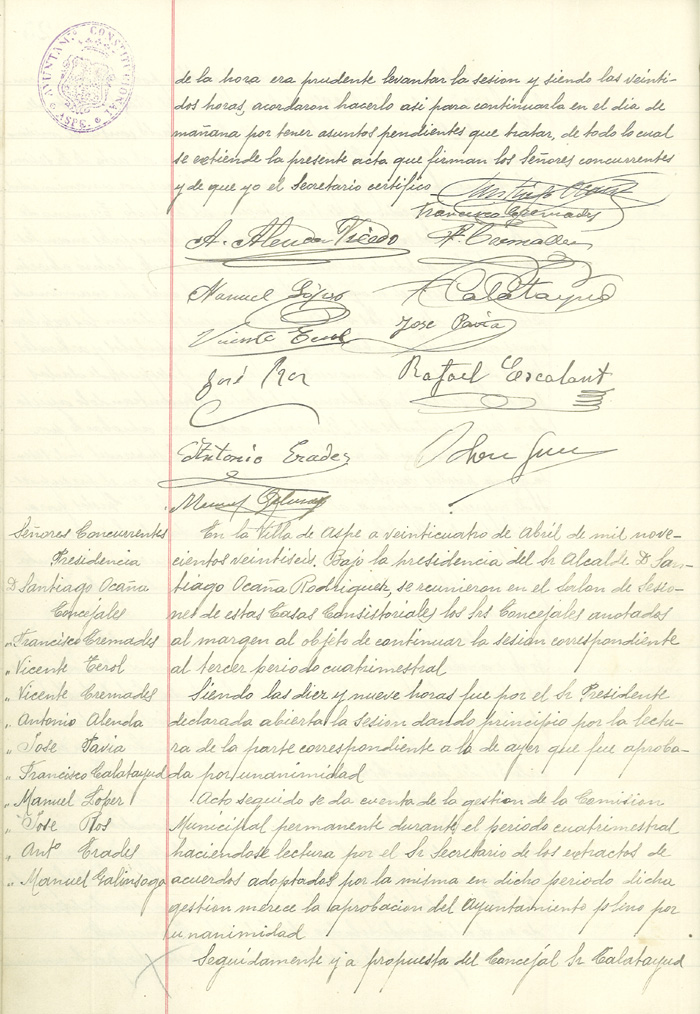 AYUNTAMTO CONSTITUCIONAL
ASPE
de la hora era prudente levantar la sesion y siendo las veinti-
dos horas, acordaron hacerlo asi para continuarla en el dia de
mañana por tener asuntos pendientes que tratar, de todo lo cual
se extiende la presente acta que firman los Señores concurrentes
y de que yo el Secretario certifico
Santiago Ocaña
Francisco Cremades
A. Alenda Vicedo
Cremades
Manuel López
Calatayud
Vicente Terol
Jose Pavia
José Ros
Rafael Escalant
Antonio Erades
Manuel
Señores Concurrentes
Presidencia
D. Santiago Ocaña
Concejales
" Francisco Cremades
" Vicente Terol
" Vicente Cremades
" Antonio Alenda
" Jose Pavia
" Francisco Calatayud
" Manuel López
" Jose Ros
" Antº Erades
" Manuel Galinsoga
En la Villa de Aspe a veinticuatro de Abril de mil nove-
cientos veintiseis. Bajo la presidencia del Sr Alcalde D San-
tiago Ocaña Rodriguez, se reunieron en el Salon de Sesio-
nes de estas Casas Consistoriales los Srs Concejales anotados
al margen al objeto de continuar la sesion correspondiente
al tercer periodo cuatrimestral
Siendo las diez y nueve horas fue por el Sr Presidente
declarada abierta la sesion dando principio por la lectu-
ra de la parte correspondiente a la de ayer que fue aproba-
da por unanimidad
Acto seguido se da cuenta de la gestion de la Comision
Municipal permanente durante el periodo cuatrimestral
haciendose lectura por el Sr Secretario de los extractos de
acuerdos adoptados por la misma en dicho periodo dicha
gestion merece la aprobacion del Ayuntamiento pleno por
unanimidad
Seguidamente y a propuesta del Concejal Sr Calatayud